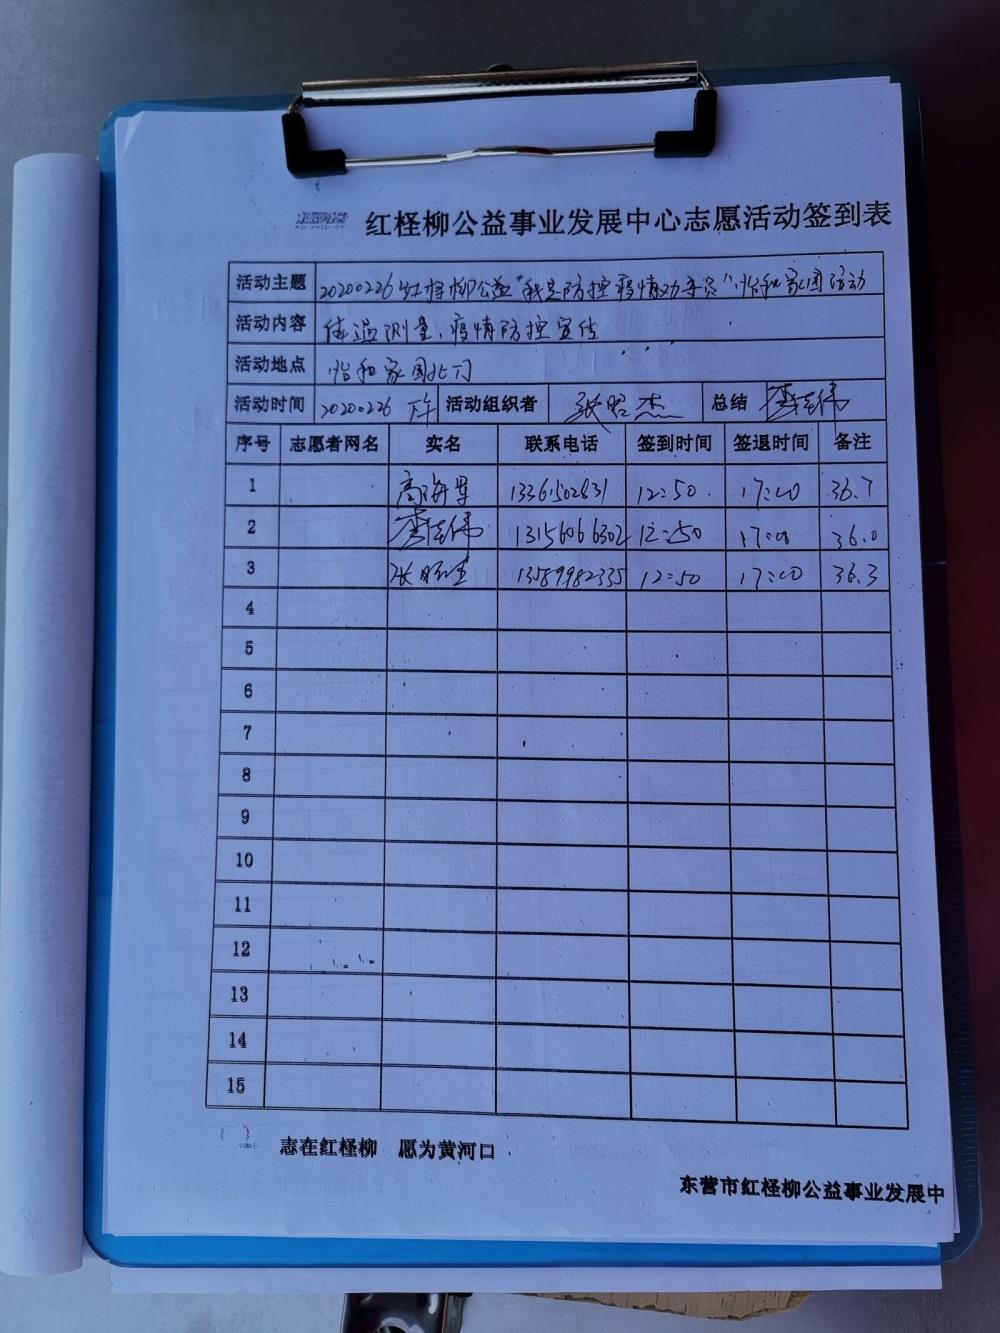 红柽柳公益事业发展中心志愿活动签到表
活动主题 20200226红柽柳公益“我是防控疫情动员”怡和家园活动
活动内容 体温测量、疫情防控宣传
活动地点 怡和家园北门
活动时间 20200226 下午 活动组织者 张昭杰 总结
序号 志愿者网名 实名 联系电话 签到时间 签退时间 备注
1 高海军 12:50 17:00 36.7
2 13156066302 12:50 17:00 36.0
3 13589982335 12:50 17:00 36.3
4
5
6
7
8
9
10
11
12
13
14
15
志在红柽柳 愿为黄河口
东营市红柽柳公益事业发展中